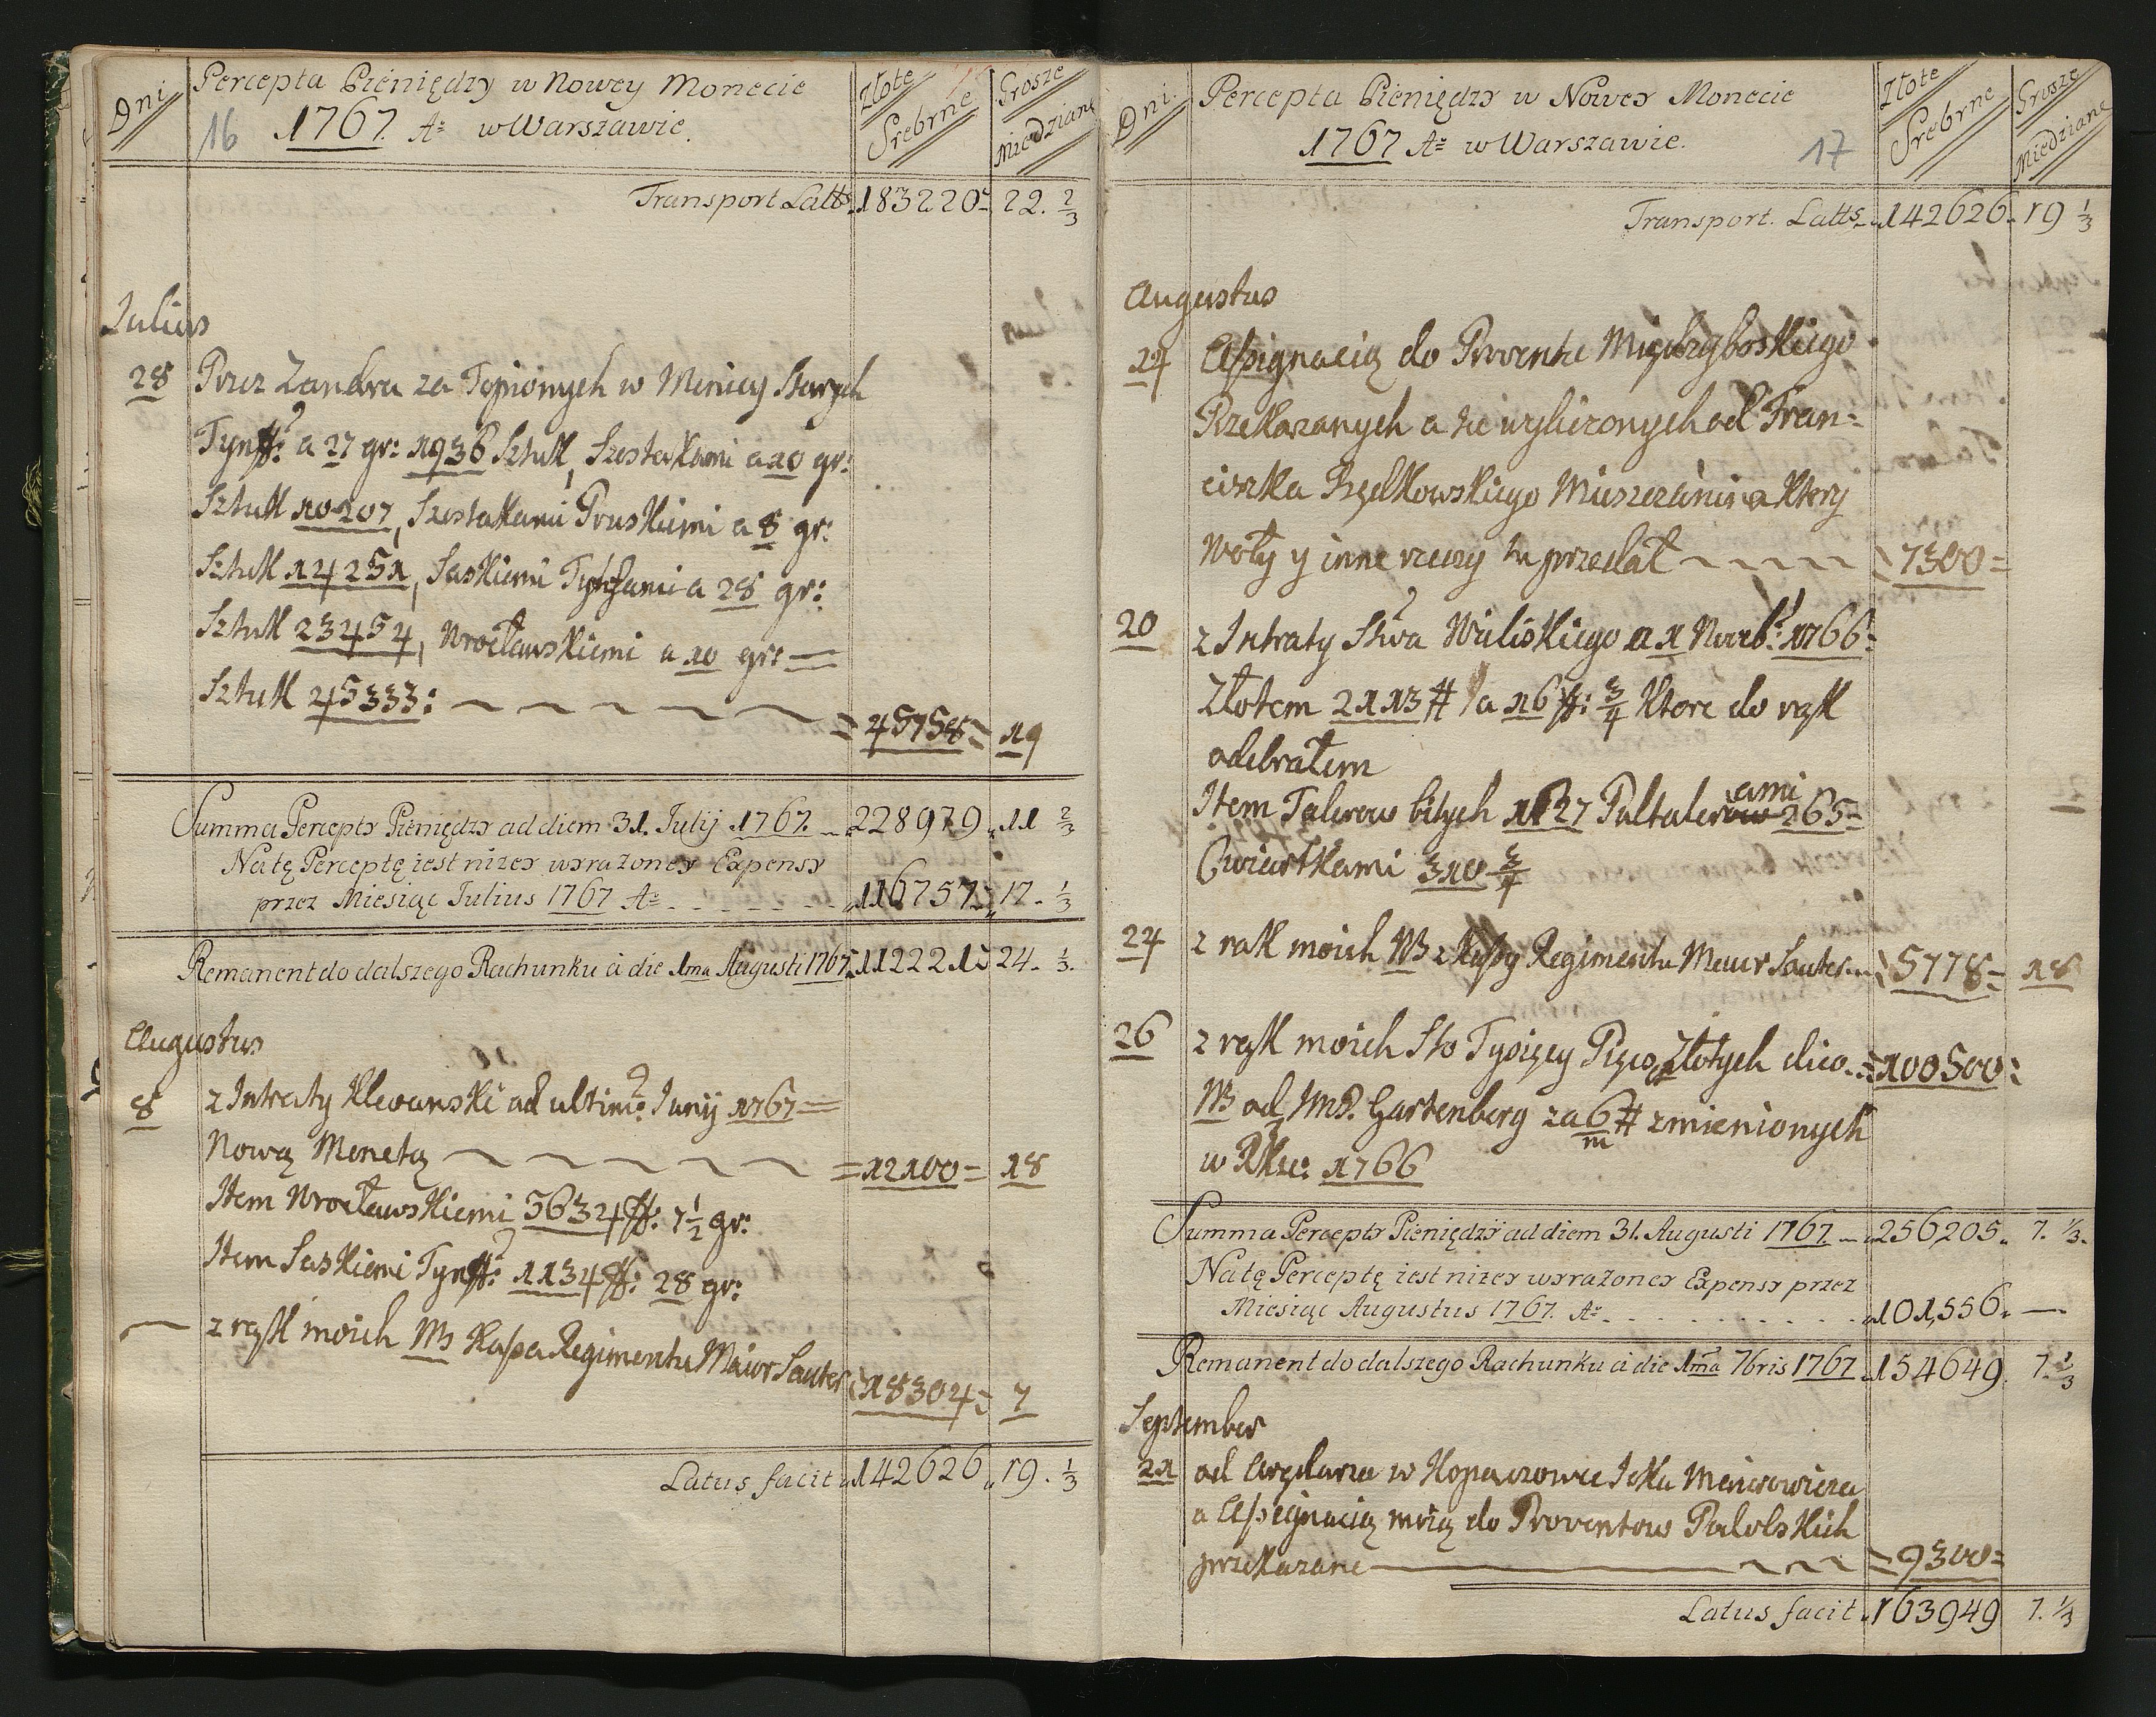 Dni
Percepta Pieniędzy w Nowey Monecie
16 1767. Aº w Warszawie.
Złote Srebrne
Grosze Miedziane
Transport Latts 183220 22. 2/3
Julius
28 Przez Zandra za Topionych w Minicy Starych
Tynff: a 27 gr: 1936 Sztuk, Szostakami a 10 gr:
Sztuk 10207, Szostakami Pruskiemi a 8 gr:
Sztuk 14251, Saskiemi Tynfami a 28 gr:
Sztuk 23454, Wrocławskiemi a 10 gr:
Sztuk 45333: = 45758 = 19
Summa Percepty Pieniędzy ad diem 31. Julij 1767. 228979 11 2/3
Na tę Perceptę iest niżey wyrażoney Expensy
przez Miesiąc Julius 1767 Aº 116757 17. 1/3
Remanent do dalszego Rachunku à die 1ma Augusti 1767. 112221 24. 1/3.
Augustus
8 z Intraty Klewanski ad ultim: Junij 1767 =
Nową Monetą = 12100 = 18
Item Wrocławskiemi 5632 ff: 7 1/2 gr:
Item Saskiemi Tynff: 1134 ff: 28 gr:
z rąk moich NB Kassa Regimentu Maior Sauter 18304 7
Latus facit 142626 19. 1/3
Dni.
Percepta Pieniędzy w Nowey Monecie
1767 Aº w Warszawie. 17
Złote Srebrne
Grosze Miedziane
Transport. Latts 142626 19 1/3
Augustus
14 Assignacią do Prowentu Międzyboskiego
Przekazanych a tu wyliczonych od Fran=
ciszka Rzędkowskiego Mieszczanina Ktory
Woły y inne rzeczy tu przedał 7300 =
20 z Intraty Stwa Wieliskiego a 1 Novrb: 1766=
Złotem 2113 # a 16 ff: 3/4 Ktore do rąk
odebrałem
Item Talerow bitych 1127 Pultalerami 265=
Cwiartkami 310 3/4
24 z rąk moich NB z Kassy Regimentu Maior Sauter 5778 = 18
26 z rąk moich Sto Tysięcy Pięcset Złotych dico = 100500:
NB od JMP. Gartenberg za 6/m # zmienionych
w Rku: 1766
Summa Percepty Pieniędzy ad diem 31. Augusti 1767. 256,205. 7. 1/3.
Na tę Perceptę iest niżey wyrażoney Expensy przez
Miesiąc Augustus 1767. Aº 101,556. —
Remanent do dalszego Rachunku à die 1ma 7bris 1767 154649. 7. 1/3
September
21 od Arędarza w Kopaczowie Icka Meierowicza
a Assignacią moią do Prowentow Podolskich
przekazane = 9300 =
Latus facit 163949 7. 1/3